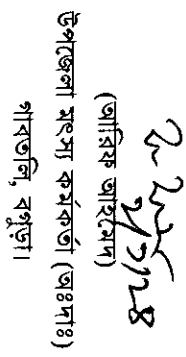 (তারিক আহমেদ)
উপজেলা মৎস্য কর্মকর্তা (অঃদাঃ)
গাবতলি, বগুড়া।